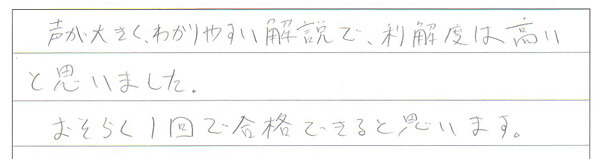 声が大きく、わかりやすい解説で、利解度は高い
と思いました。
おそらく1回で合格できると思います。